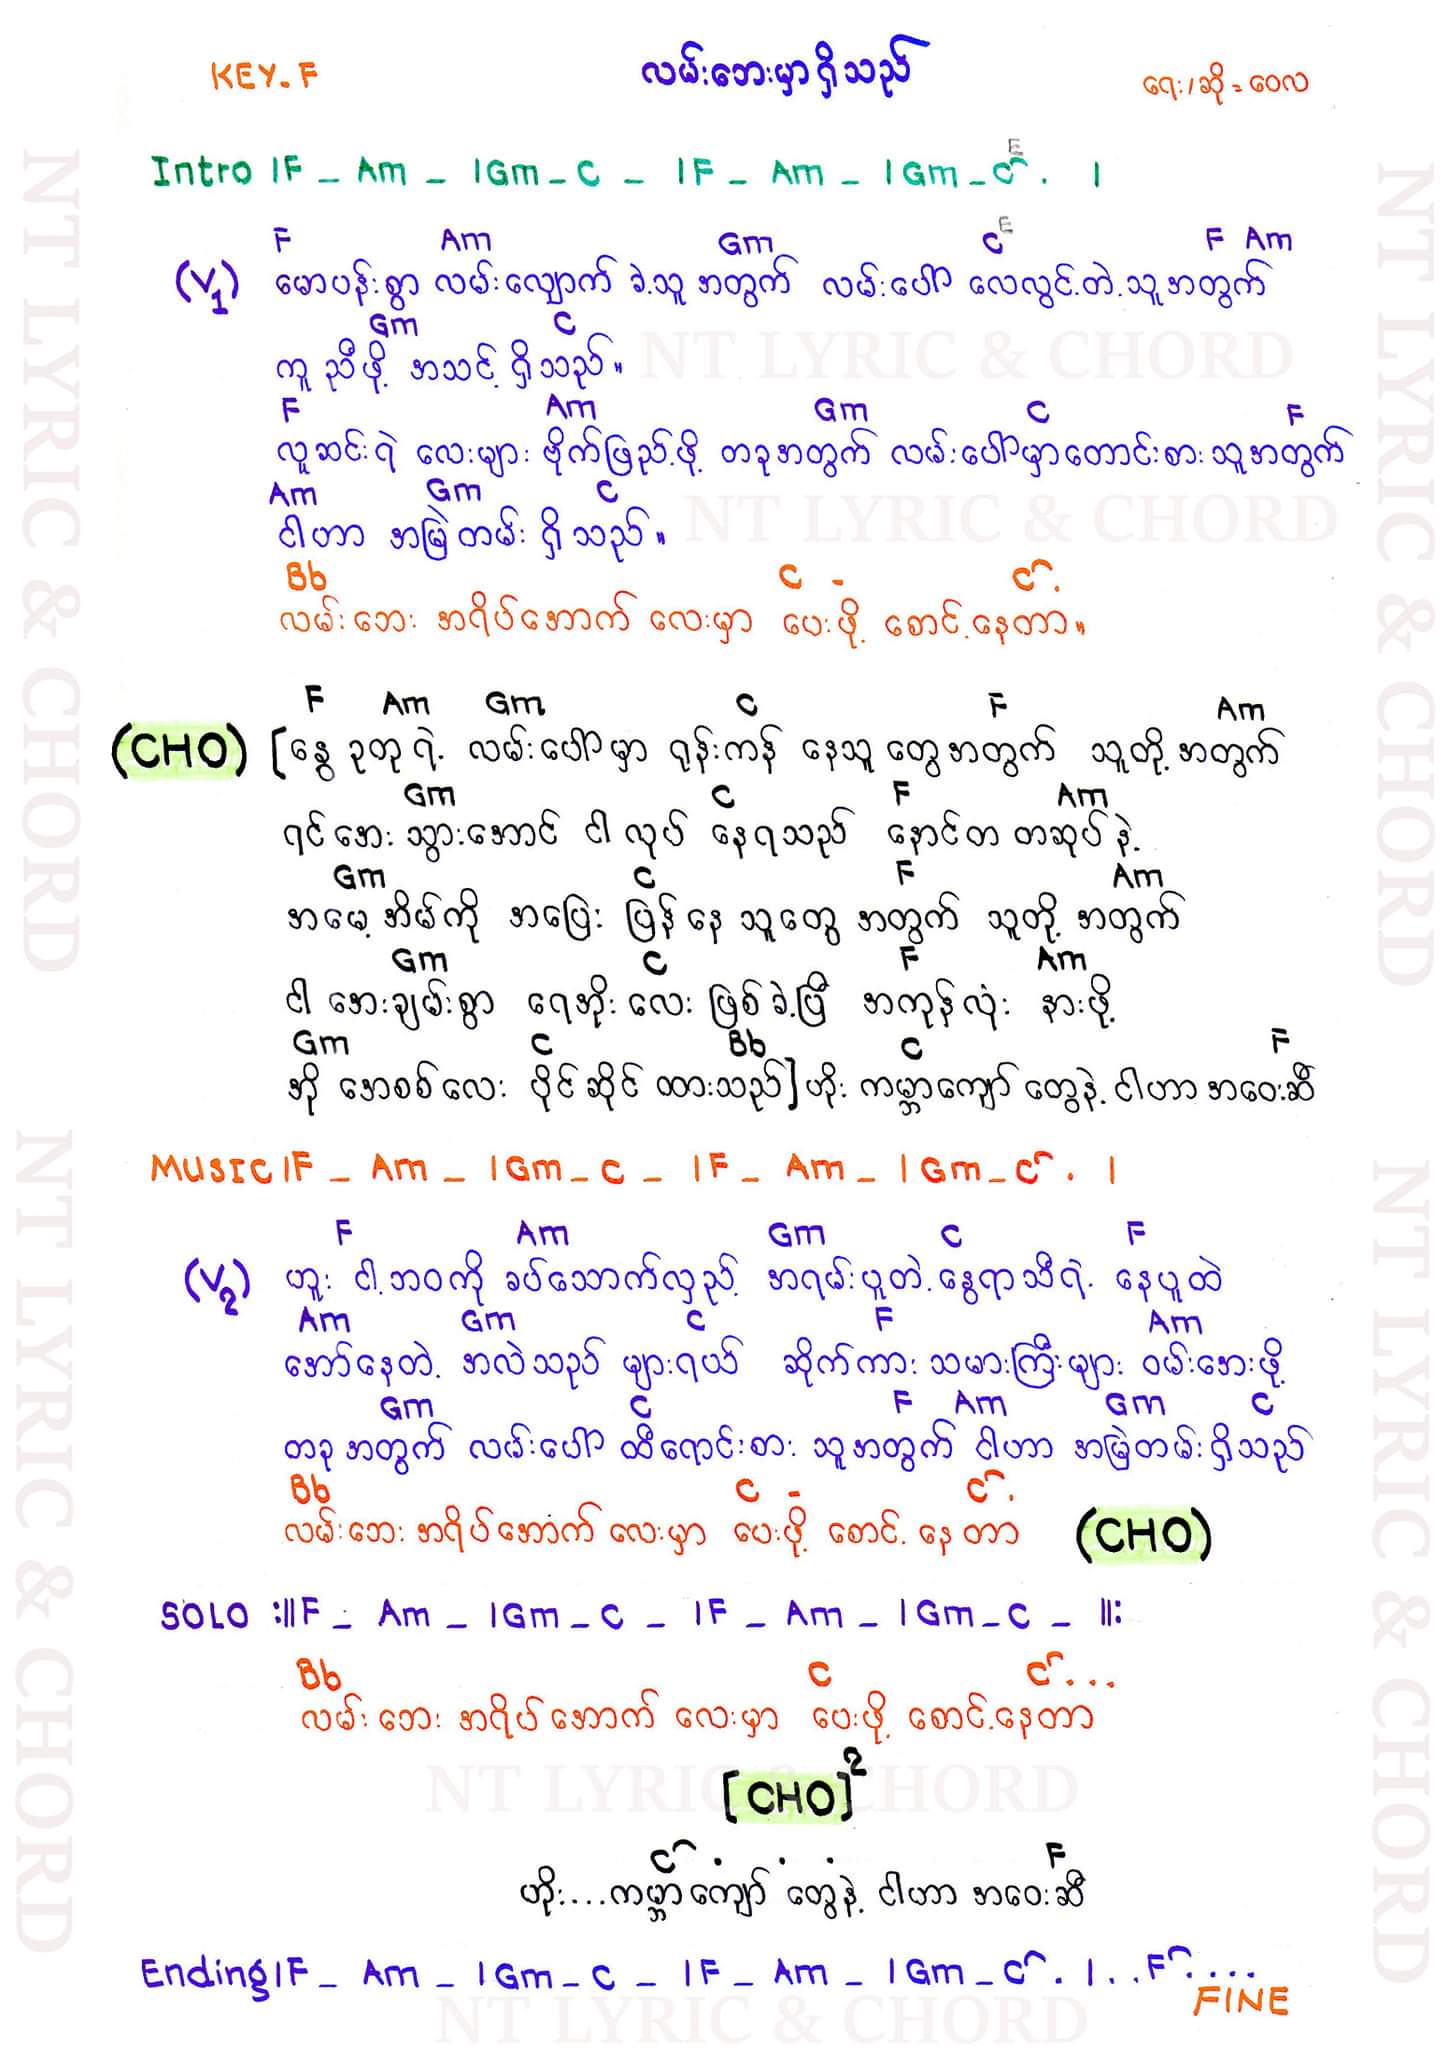 KEY. F
လမ်းဘေးမှာရှိသည်
ရေး/ဆို = ဝေလ
Intro |F _ Am _ |Gm _ C _ |F _ Am _ |Gm _ C . |
E
F Am Gm C E F Am
(V1) မောပန်းစွာ လမ်းလျှောက် ခဲ့သူ အတွက် လမ်းပေါ် လေလွင့်တဲ့သူအတွက်
Gm C
ကူညီဖို့ အသင့် ရှိသည်။
F Am Gm C F
လူဆင်းရဲ လေးများ ဗိုက်ဖြည့်ဖို့ တခုအတွက် လမ်းပေါ်မှာတောင်းစားသူအတွက်
Am Gm C
ငါဟာ အမြဲတမ်း ရှိသည်။
Bb C - C .
လမ်းဘေး အရိပ်အောက် လေးမှာ ပေးဖို့ စောင့်နေတာ။
F Am Gm C F Am
(CHO) [နွေ ဥတုရဲ့ လမ်းပေါ်မှာ ရုန်းကန် နေသူ တွေအတွက် သူတို့ အတွက်
Gm C F Am
ရင်အေး သွားအောင် ငါ လုပ် နေရသည် နောင်တ တဆုပ်နဲ့
Gm C F Am
အမေ့အိမ်ကို အပြေး ပြန်နေ သူတွေ အတွက် သူတို့ အတွက်
Gm C F Am
ငါ အေးချမ်းစွာ ရေအိုးလေး ဖြစ်ခဲ့ပြီ အကုန်လုံး နားဖို့
Gm C Bb C F
အို အေစစ်လေး ပိုင်ဆိုင် ထားသည်]ဟိုး ကမ္ဘာကျော် တွေနဲ့ ငါဟာ အဝေးဆီ
MUSIC |F _ Am _ |Gm _ C _ |F _ Am _ |Gm _ C . |
F Am Gm C F
(V2) ဟူး ငါ့ဘဝကို ခပ်သောက်လှည့် အရမ်းပူတဲ့နွေရာသီရဲ့ နေပူထဲ
Am Gm C F Am
အော်နေတဲ့ အလဲသည် များရယ် ဆိုက်ကား သမားကြီးများ ဝမ်းအေးဖို့
Gm C F Am Gm C
တခုအတွက် လမ်းပေါ် ထီရောင်းစား သူအတွက် ငါဟာ အမြဲတမ်းရှိသည်
Bb C - C .
လမ်းဘေး အရိပ်အောက် လေးမှာ ပေးဖို့ စောင့် နေတာ (CHO)
SOLO :||F _ Am _ |Gm _ C _ |F _ Am _ |Gm _ C _ ||:
Bb C C ...
လမ်းဘေး အရိပ်အောက် လေးမှာ ပေးဖို့ စောင့်နေတာ
[CHO]2
C . . . F
ဟိုး....ကမ္ဘာကျော် တွေနဲ့ ငါဟာ အဝေးဆီ
Ending |F _ Am _ |Gm _ C _ |F _ Am _ |Gm _ C . | . . F ....
FINE
NT LYRIC & CHORD
NT LYRIC & CHORD
NT LYRIC & CHORD
NT LYRIC & CHORD
NT LYRIC & CHORD
NT LYRIC & CHORD
NT LYRIC & CHORD
NT LYRIC & CHORD